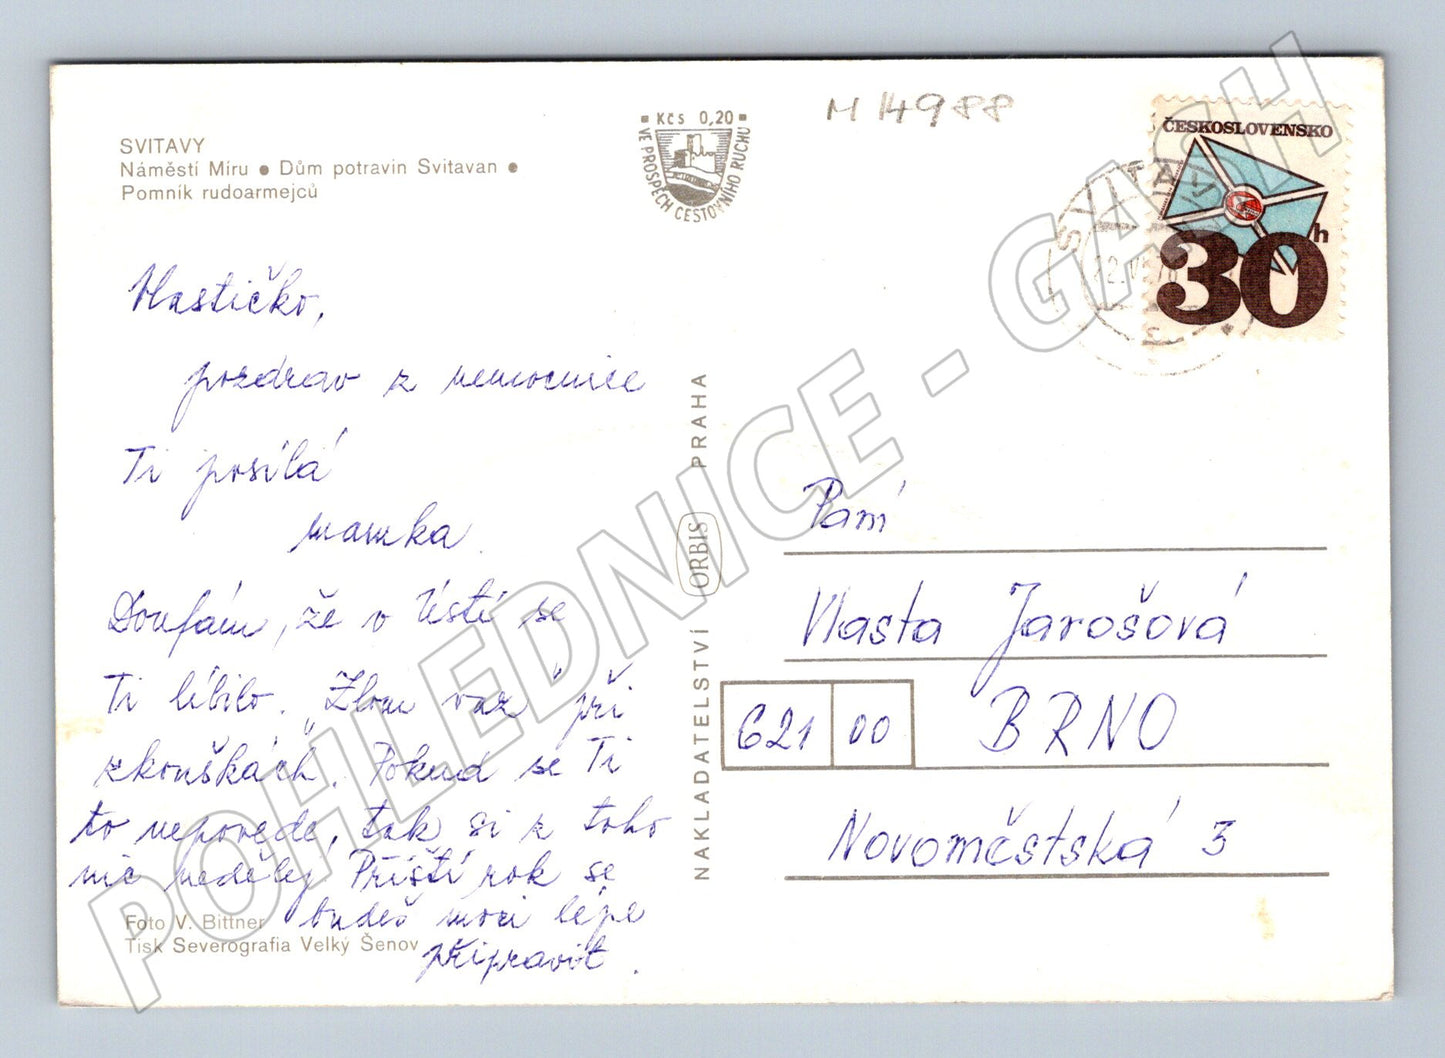 SVITAVY
Náměstí Míru ● Dům potravin Svitavan ●
Pomník rudoarmejců
Kčs 0,20
VE PROSPĚCH CESTOVNÍHO RUCHU
M 14988
ČESKOSLOVENSKO
30h
SVITAVY
Vlastičko,
pozdrav z nemocnice
Ti posílá
mamka.
Doufám, že v Ústí se
Ti líbilo. "Zlom vaz" při
zkouškách. Pokud se Ti
to nepovede, tak si z toho
nic nedělej. Příští rok se
budeš moci lépe
připravit.
Foto V. Bittner
Tisk Severografia Velký Šenov
NAKLADATELSTVÍ ORBIS PRAHA
Paní
Vlasta Jarošová
621 00 BRNO
Novoměstská 3
POHLEDNICE - GASH